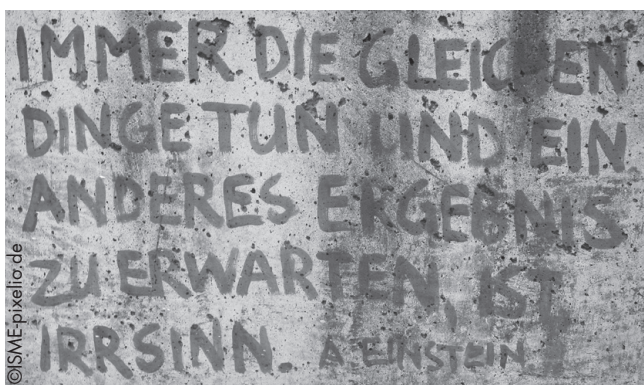 IMMER DIE GLEICHEN
DINGE TUN UND EIN
ANDERES ERGEBNIS
ZU ERWARTEN, IST
IRRSINN. A. EINSTEIN
©ISME-pixelio.de